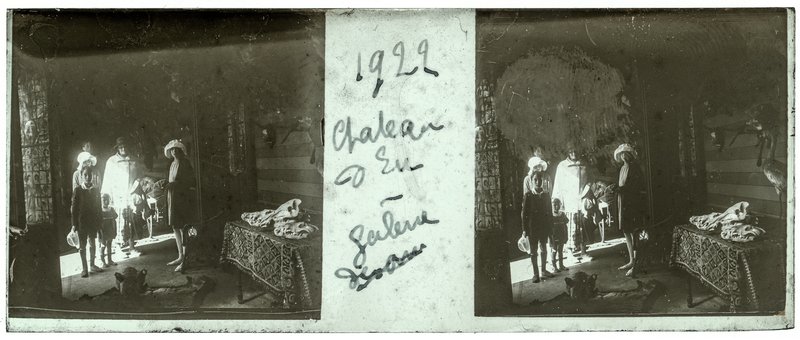 1922
Chateau
d'Eu
Galerie